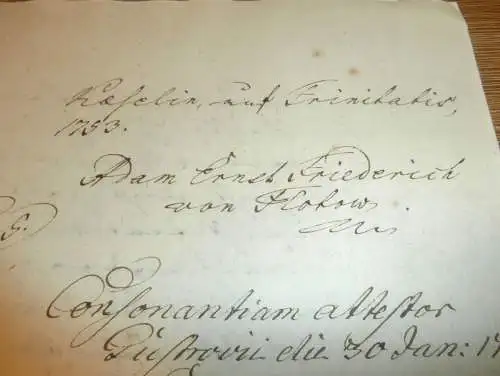 Kæselin, auf Trinitatis,
1753.
Adam Ernst Friederich
von Flotow
S.
Consonantiam attestor
Gustrovii die 30 Jan: 17